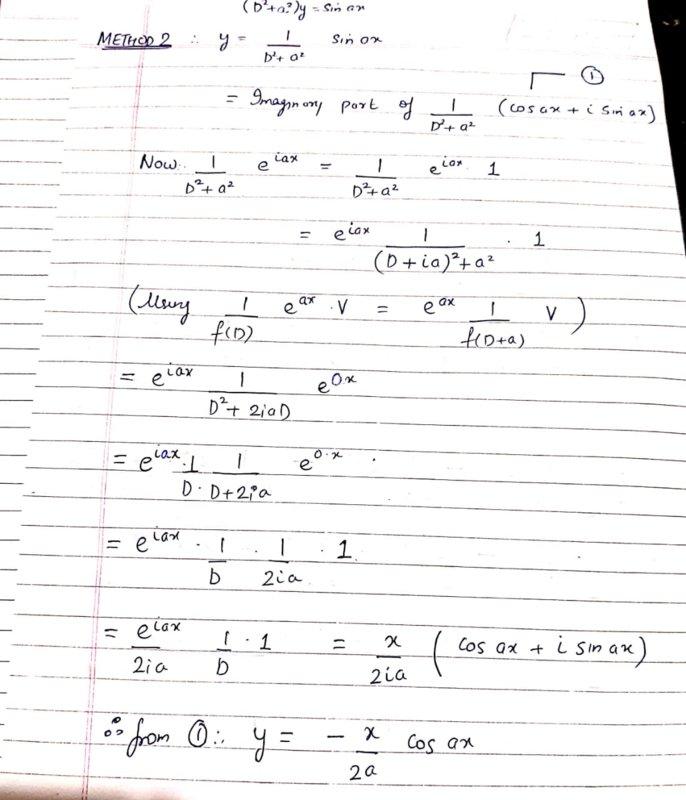 (D²+a²)y = sin ax
METHOD 2 ∴ y = 1/(D²+a²) sin ax
①
= Imaginary part of 1/(D²+a²) (cos ax + i sin ax)
Now 1/(D²+a²) e^{iax} = 1/(D²+a²) e^{iax} 1
= e^{iax} 1/((D+ia)²+a²) · 1
(Using 1/f(D) e^{ax} · V = e^{ax} 1/f(D+a) V)
= e^{iax} 1/(D²+2iaD) e^{0x}
= e^{iax} · 1/D · 1/(D+2ia) e^{0·x}
= e^{iax} · 1/D · 1/2ia · 1
= e^{iax}/2ia 1/D · 1 = x/2ia (cos ax + i sin ax)
∴ from ① ∴ y = - x/2a cos ax